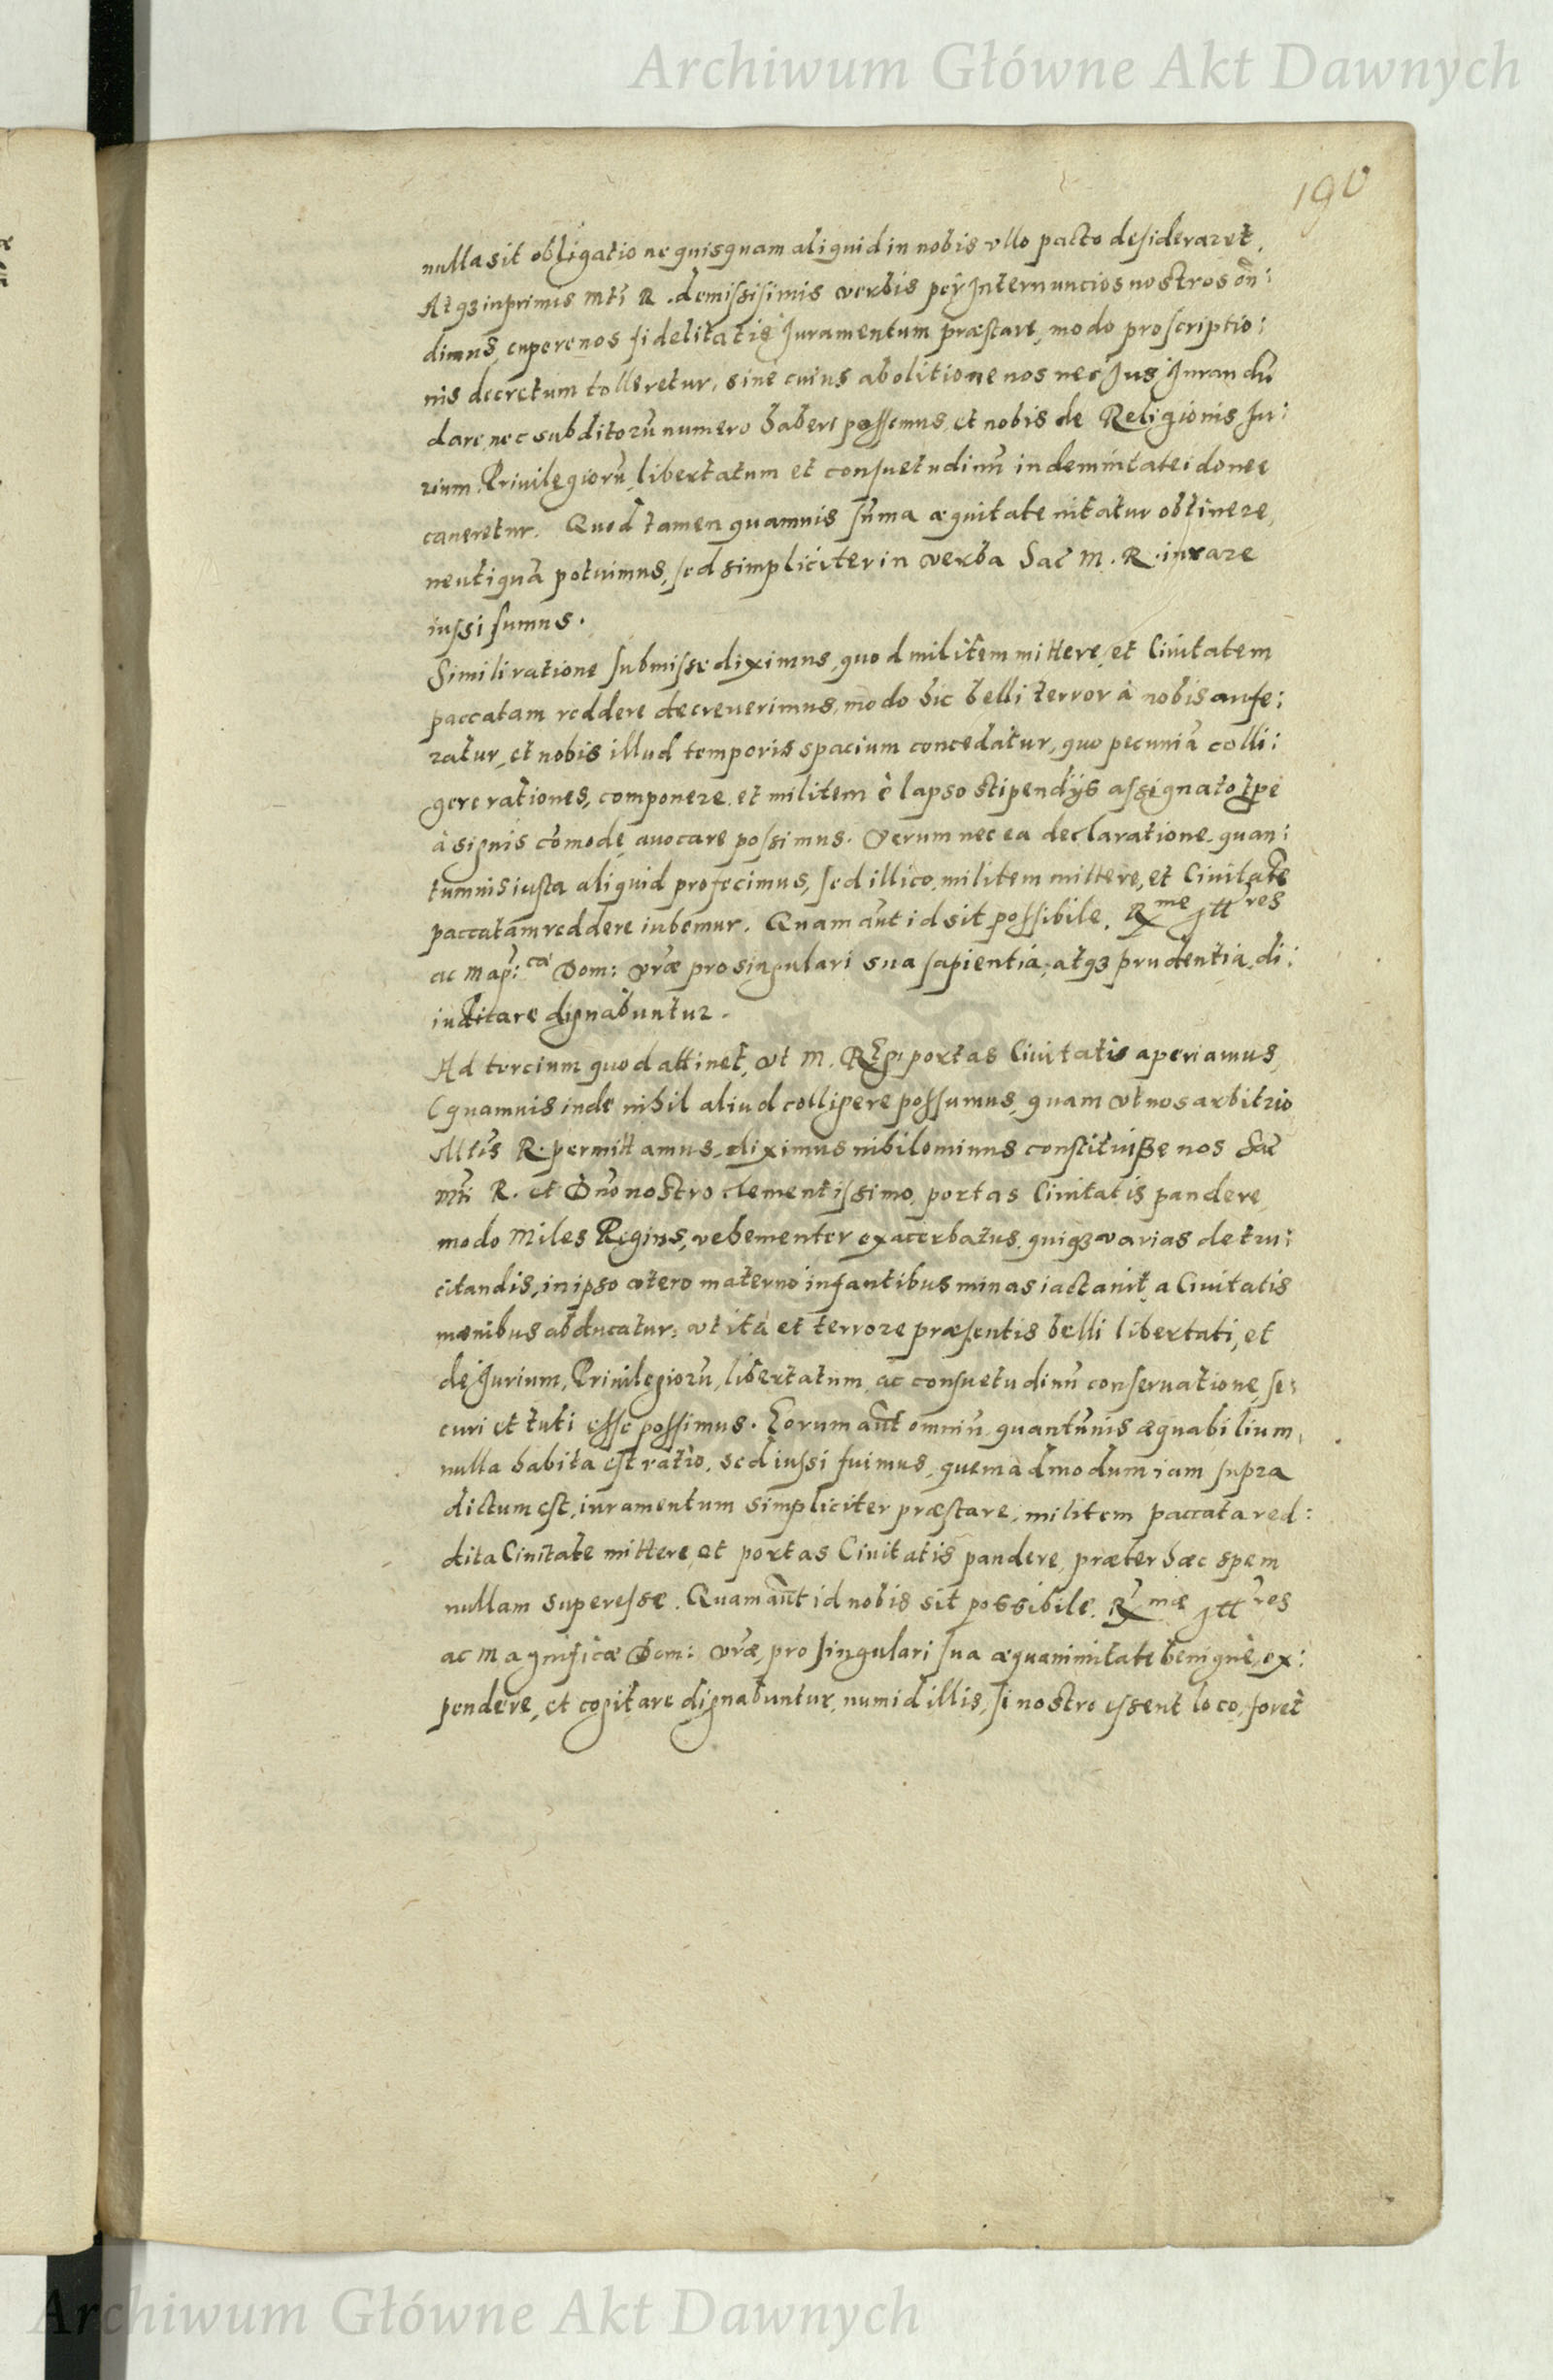 Archiwum Główne Akt Dawnych
190
nulla sit obligatio ne quisquam aliquid in nobis vllo pacto desideraret.
Atq3 inprimis Mti R. demississimis verbis per Internuncios nostros on̄:
dimus, cupere nos fidelitatis Juramentum præstare, modo proscriptio:
nis decretum tolleretur, sine cuius abolitione nos nec Jus Jurandū
dare nec subditorū numero haberi possemus, et nobis de Religionis Ju:
rium, Priuilegiorū, libertatum et consuetudinū indemnitate idonee
caueretur. Quod tamen quamuis sūma æquitate nitatur obtinere,
neutiquā potuimus, sed simpliciter in verba Sac̄ M. R. iurare
iussi sumus.
Simili ratione submisse diximus, quod militem mittere, et Ciuitatem
paccatam reddere decreuerimus, modo hic belli terror à nobis aufe:
ratur, et nobis illud temporis spacium concedatur, quo pecuniā colli:
gere rationes, componere et militem è lapso stipendijs assignato tp̄e
à signis cōmode auocare possimus. Verum nec ea declaratione, quan:
tumuis iusta aliquid profecimus, sed illico militem mittere, et Ciuitatē
paccatam reddere iubemur. Quam aūt id sit possibile, Rme Jllres
ac Mag:cæ Dom: vr̄æ pro singulari sua sapientia, atq3 prudentia, di:
iudicare dignabuntur.
Ad tercium quod attinet, vt M. Regiæ portas Ciuitatis aperiamus,
(quamuis inde nihil aliud colligere possumus, quam vt nos arbitrio
Mtis R. permittamus, diximus nihilominus constituisse nos Sac̄
Mti R. et Dn̄o nostro clementissimo portas Ciuitatis pandere,
modo Miles Regius, vehementer exacerbatus, quiq3 varias de tru:
citandis, in ipso vtero materno infantibus minas iactauit, a Ciuitatis
mænibus abducatur, vt ità et terrore præsentis belli libertati, et
de Jurium, Priuilegiorū, libertatum, ac consuetudinū conseruatione, se:
curi et tuti esse possimus. Eorum aūt omniū quantūuis æquabilium,
nulla habita est ratio, sed iussi fuimus, quemadmodum iam supra
dictum est, iuramentum simpliciter præstare, militem paccata red:
dita Ciuitate mittere, et portas Ciuitatis pandere, præter hæc spem
nullam superesse. Quam aūt id nobis sit possibile, Rmæ Jllres
ac Magnificæ Dom: vr̄æ, pro singulari sua æquanimitate benignè, ex:
pendere, et cogitare dignabuntur, num id illis, si nostro essent loco, foret
Archiwum Główne Akt Dawnych